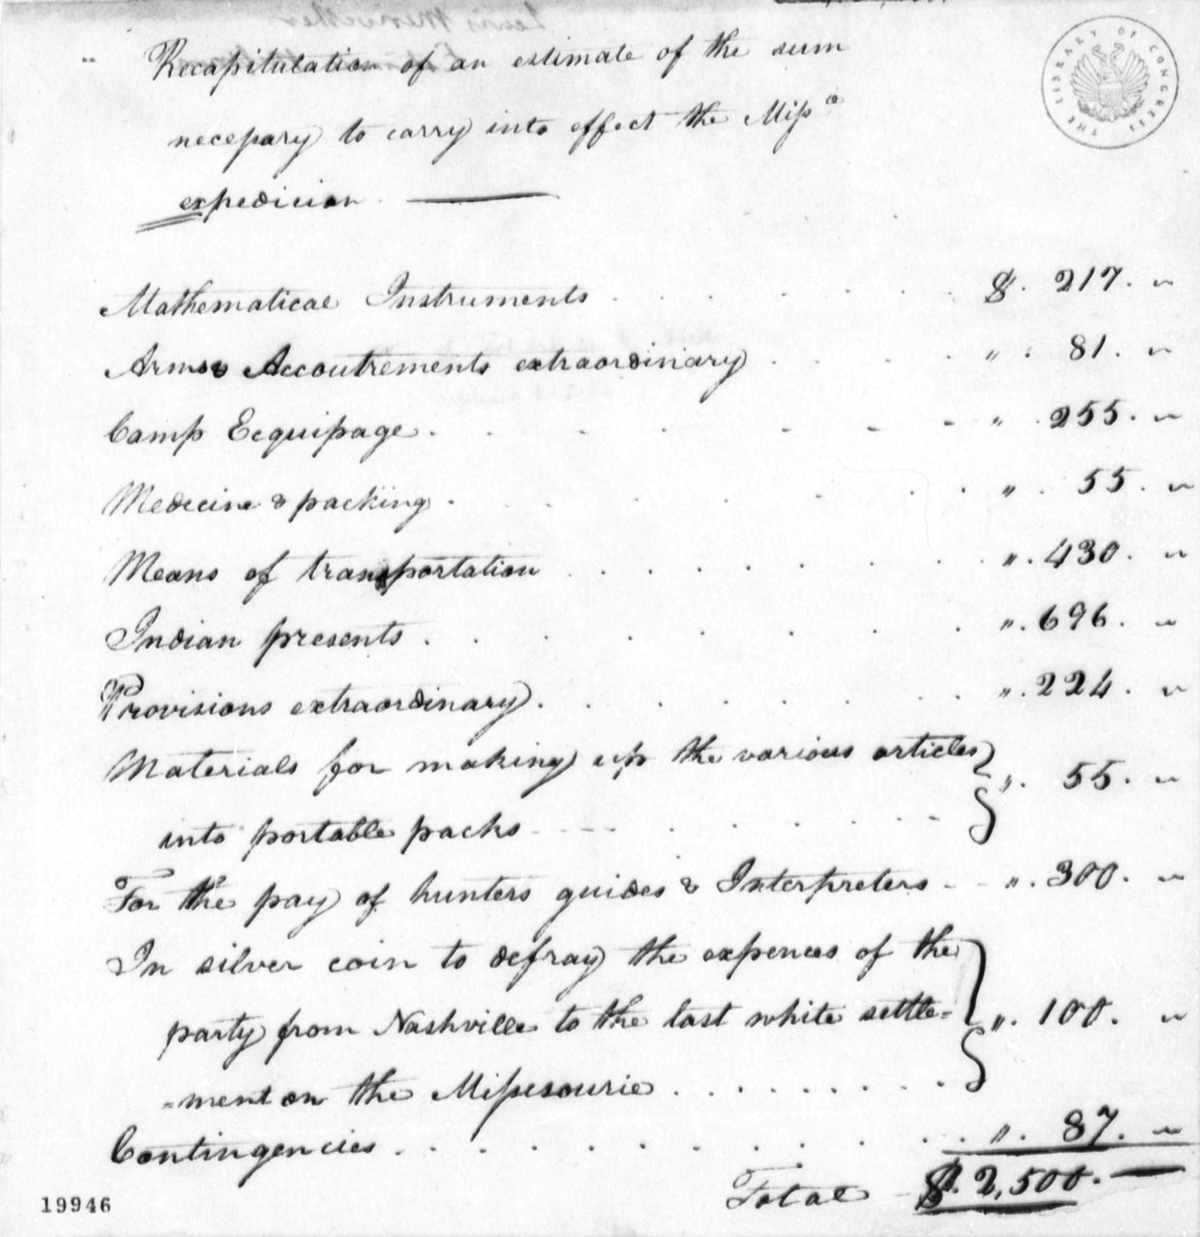 Lewis Meriwether
Recapitulation of an estimate of the sum
necessary to carry into effect the Misse
expedicion
THE LIBRARY OF CONGRESS
Mathematical Instruments . . . . . . $. 217. "
Arms & Accoutrements extraordinary . . . . ". 81. "
Camp Ecquipage . . . . . - - " . 255. "
Medecine & packing . . . . . ". 55. "
Means of transportation . . . . . . ". 430. "
Indian presents . . . . . . ". 696. "
Provisions extraordinary . . . . . . ". 224. "
Materials for making up the various articles
into portable packs - - - - . . . . . ". 55. "
For the pay of hunters guides & Interpreters - - ". 300. "
In silver coin to defray the expences of the
party from Nashville to the last white settle=
=ment on the Missisourie . . . . . . . ". 100. "
Contingencies . . . . . . . . . ". 87. "
Total $. 2,500.
19946